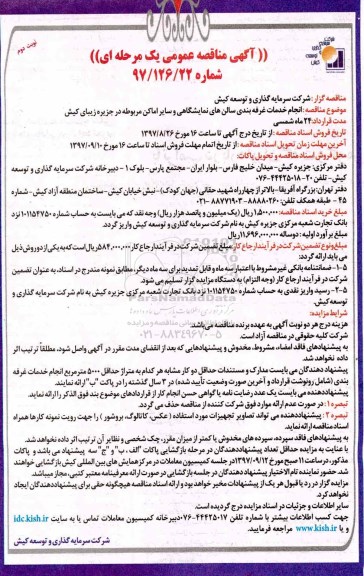 نوبت دوم
(( آگهی مناقصه عمومی یک مرحله ای))
شماره ۹۷/۱۲۶/۲۲
مناقصه گزار: شرکت سرمایه گذاری و توسعه کیش
موضوع مناقصه: انجام خدمات غرفه بندی سالن های نمایشگاهی و سایر اماکن مربوطه در جزیره زیبای کیش
مدت قرارداد: ۲۴ ماه شمسی
تاریخ فروش اسناد مناقصه: از تاریخ درج آگهی تا ساعت ۱۶ مورخ ۱۳۹۷/۸/۲۶
آخرین مهلت زمان تحویل اسناد مناقصه: از تاریخ اتمام مهلت فروش اسناد تا ساعت ۱۶ مورخ ۱۳۹۷/۰۹/۱۰
محل فروش اسناد مناقصه و تحویل پاکات:
دفتر مرکزی: جزیره کیش- میدان خلیج فارس- بلوار ایران- مجتمع پارس- بلوک ۱ - دبیرخانه شرکت سرمایه گذاری و توسعه
کیش- تلفن ۲۰-۰۷۶-۴۴۴۲۵۰۱۸
دفتر تهران: بزرگراه آفریقا- بالاتر از چهارراه شهید حقانی (جهان کودک)- نبش خیابان کیش- ساختمان منطقه آزاد کیش- شماره
۴۵ - طبقه همکف تلفن: ۸۸۸۸۰۲۶۰ - ۸۸۷۷۱۹۰۳-۰۲۱
مبلغ خرید اسناد مناقصه: ۱،۵۰۰،۰۰۰ ریال (یک میلیون و پانصد هزار ریال) وجه نقد که می بایست به حساب شماره ۱۰۱۱۵۴۷۵۰ نزد
بانک تجارت شعبه مرکزی جزیره کیش به نام شرکت سرمایه گذاری و توسعه کیش واریز گردد.
مبلغ برآورد اولیه: دوساله ۱۱،۶۹۶،۰۰۰،۰۰۰ ریال
مبلغ و نوع تضمین شرکت در فرآیند ارجاع کار: مبلغ تضمین شرکت در فرآیند ارجاع کار ۵۸۴،۰۰۰،۰۰۰ ریال است که به یکی از دو روش ذیل
می باید ارائه گردد:
۱-۵- ضمانتنامه بانکی غیر مشروط با اعتبار سه ماه و قابل تمدید برای سه ماه دیگر، مطابق نمونه مندرج در اسناد، به عنوان تضمین
شرکت در فرآیند ارجاع کار (وجه التزام) به دستگاه مزایده گزار تسلیم می شود.
۲-۵- رسید واریز نقدی به حساب شماره ۱۰۱۱۵۴۷۵۰ نزد بانک تجارت شعبه مرکزی جزیره کیش به نام شرکت سرمایه گذاری و
توسعه کیش.
شرایط مزایده:
هزینه درج هر دو نوبت آگهی به عهده برنده مناقصه می باشد.
شرکت کلیه حقوقی در مناقصه آزاد است.
به پیشنهادهای فاقد امضاء، مشروط، مخدوش و پیشنهادهایی که بعد از انقضای مدت مقرر در آگهی واصل شود، مطلقاً ترتیب اثر
داده نخواهد شد.
پیشنهاد دهندگان می بایست مدارک و مستندات حداقل دو کار مشابه هر کدام به متراژ حداقل ۵۰۰۰ مترمربع انجام خدمات غرفه
بندی (شامل رونوشت قرارداد و آخرین صورت وضعیت تأیید شده) در ۳ سال گذشته را در پاکت "ب" ارائه نمایند.
پیشنهاددهنده می بایست یک عدد رضایت نامه یا گواهی حسن انجام کار از قراردادهای موضوع بند فوق الذکر را ارائه نماید.
تبصره ۱: در صورت عدم ارائه موارد فوق شرکت کننده از مناقصه حذف می گردد.
تبصره ۲: پیشنهاددهنده می تواند تصاویر تجهیزات مورد استفاده (عکس، کاتالوگ، بروشور) را جهت رویت نمونه کارها همراه
اسناد مناقصه ارائه نماید.
به پیشنهادهای فاقد سپرده، سپرده های مخدوش یا کمتر از میزان مقرر، چک شخصی و نظایر آن ترتیب اثر داده نخواهد شد.
با عنایت به مزایده حداقل تعداد پیشنهاددهندگان در مرحله بازگشایی پاکات "الف، ب" و "ج" سه پیشنهاد می باشد و پاکات
مذکور، در ساعت ۱۱ صبح مورخ ۱۳۹۷/۰۹/۱۲ در جلسه کمیسیون معاملات در مرکز همایش های بین المللی کیش بازگشایی خواهند
شد. حضور نماینده تام الاختیار پیشنهاد دهندگان در جلسه بازگشایی در صورت ارائه معرفی نامه معتبر کتبی، مجاز می باشد.
مزایده گزار در رد یا قبول هر یک از پیشنهادات مخیر خواهد بود و ارائه اسناد مناقصه هیچگونه حقی برای پیشنهاددهندگان ایجاد
نخواهد کرد.
سایر اطلاعات و جزئیات در اسناد مزایده درج گردیده است.
جهت کسب اطلاعات بیشتر با شماره تلفن ۰۷۶-۴۴۴۲۵۰۱۷ دبیرخانه کمیسیون معاملات تماس یا به سایت idc.kish.ir
و یا www.kish.ir مراجعه فرمایید.
شرکت سرمایه گذاری و توسعه کیش